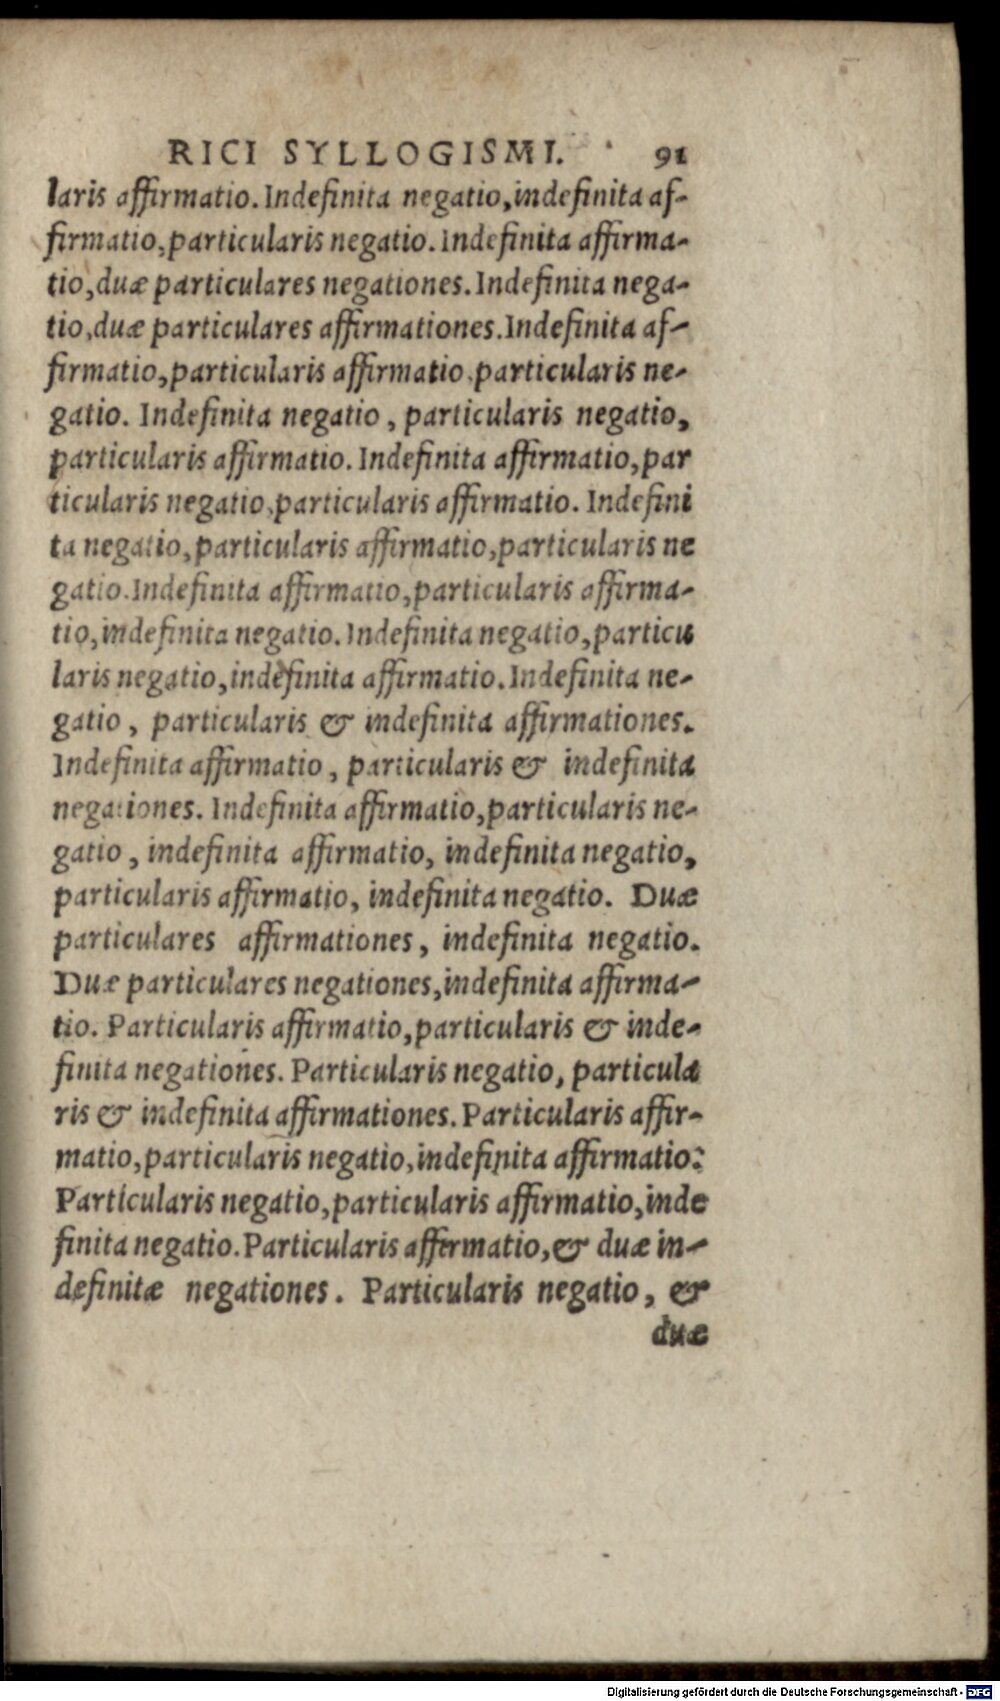 RICI SYLLOGISMI. 91
laris affirmatio. Indefinita negatio, indefinita af-
firmatio, particularis negatio. Indefinita affirma-
tio, duæ particulares negationes. Indefinita nega-
tio, duæ particulares affirmationes. Indefinita af-
firmatio, particularis affirmatio, particularis ne-
gatio. Indefinita negatio, particularis negatio,
particularis affirmatio. Indefinita affirmatio, par
ticularis negatio, particularis affirmatio. Indefini
ta negatio, particularis affirmatio, particularis ne
gatio. Indefinita affirmatio, particularis affirma-
tio, indefinita negatio. Indefinita negatio, particu
laris negatio, indefinita affirmatio. Indefinita ne-
gatio, particularis & indefinita affirmationes.
Indefinita affirmatio, particularis & indefinita
negationes. Indefinita affirmatio, particularis ne-
gatio, indefinita affirmatio, indefinita negatio,
particularis affirmatio, indefinita negatio. Duæ
particulares affirmationes, indefinita negatio.
Duæ particulares negationes, indefinita affirma-
tio. Particularis affirmatio, particularis & inde-
finita negationes. Particularis negatio, particula
ris & indefinita affirmationes. Particularis affir-
matio, particularis negatio, indefinita affirmatio:
Particularis negatio, particularis affirmatio, inde
finita negatio. Particularis affirmatio, & duæ in-
definitæ negationes. Particularis negatio, &
duæ
Digitalisierung gefördert durch die Deutsche Forschungsgemeinschaft - DFG